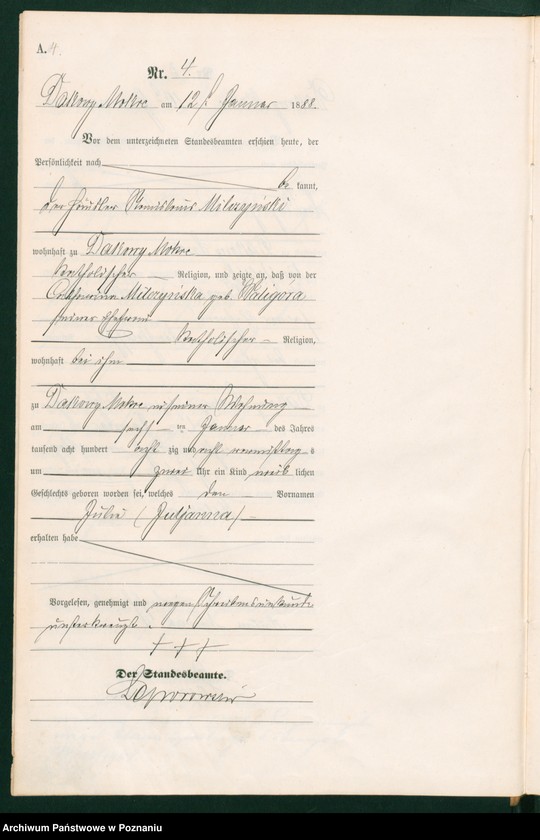 A. 4.
Nr. 4.
Dakowy Mokre am 12 t Januar 1888.
Vor dem unterzeichneten Standesbeamten erschien heute, der
Persönlichkeit nach
be kannt,
der Häusler Stanislaus Milczyński
wohnhaft zu Dakowy Mokre
katholischer Religion, und zeigte an, daß von der
Catharina Milczyńska geb. Waligóra
seiner Ehefrau
katholischer Religion,
wohnhaft bei ihm
zu Dakowy Mokre in seiner Wohnung
am ten Januar des Jahres
tausend acht hundert acht zig und acht vormittag s
um zwei Uhr ein Kind weib lichen
Geschlechts geboren worden sei, welches den Vornamen
Julie (Juljanna)
erhalten habe
Vorgelesen, genehmigt und wegen Schreibensunkunde
unterkreuzt.
+ + +
Der Standesbeamte.
Archiwum Państwowe w Poznaniu